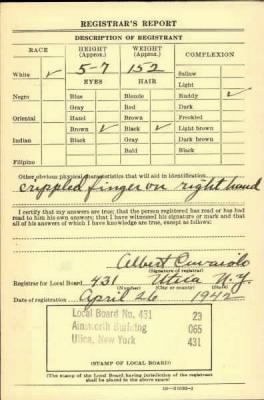 REGISTRAR'S REPORT
DESCRIPTION OF REGISTRANT
RACE HEIGHT (Approx.) WEIGHT (Approx.) COMPLEXION
White ✓ 5-7 152 Sallow
EYES HAIR Light
Negro Blue Blonde Ruddy ✓
Gray Red Dark
Oriental Hazel Brown Freckled
Brown ✓ Black ✓ Light brown
Indian Black Gray Dark brown
Bald Black
Filipino
Other obvious physical characteristics that will aid in identification
crippled finger on right hand
I certify that my answers are true; that the person registered has read or has had
read to him his own answers; that I have witnessed his signature or mark and that
all of his answers of which I have knowledge are true, except as follows:
Albert
(Signature of registrar)
Registrar for Local Board 431 Utica N.Y.
(Number) (City or county) (State)
Date of registration April 26 1942
Local Board No. 431 23
Ainsworth Building 065
Utica, New York 431
(STAMP OF LOCAL BOARD)
(The stamp of the Local Board having jurisdiction of the registrant
shall be placed in the above space)